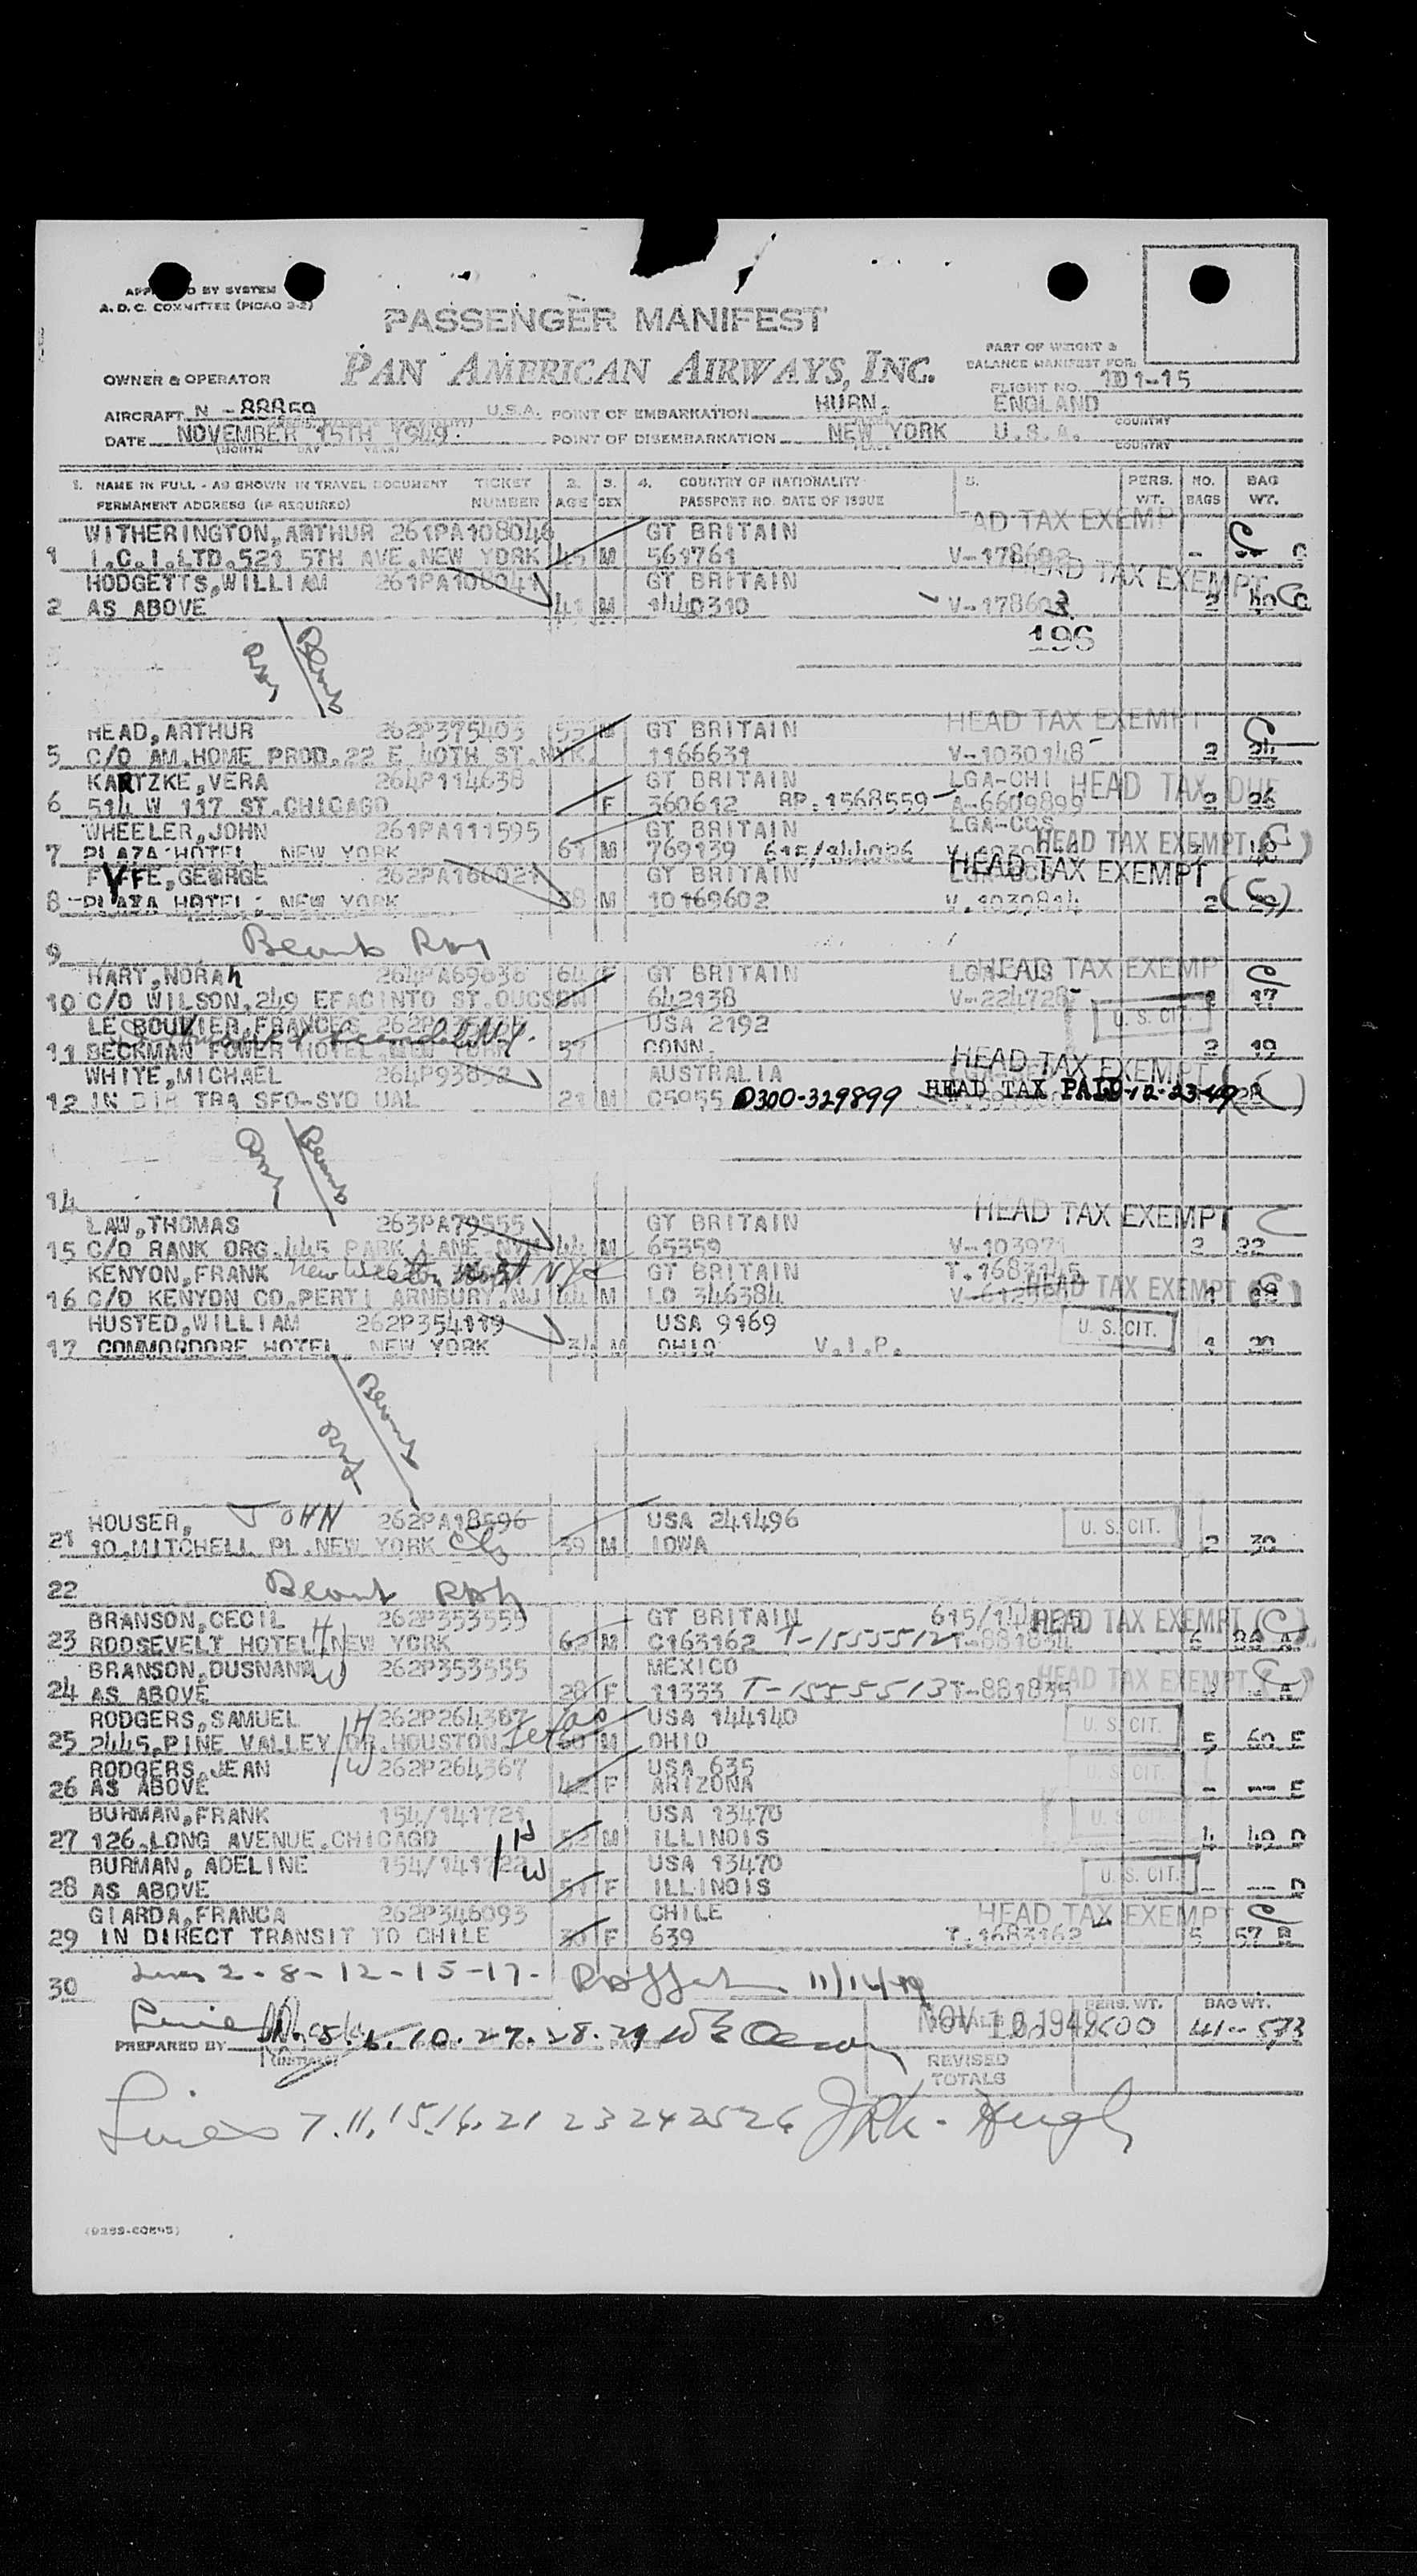 A. D. C. COMMITTEE (PICAO 3-2)
PASSENGER MANIFEST
PAN AMERICAN AIRWAYS, INC.
PART OF WEIGHT &
BALANCE MANIFEST FOR:
OWNER & OPERATOR
FLIGHT NO. 101-15
AIRCRAFT N -88859 U.S.A. POINT OF EMBARKATION HURN, ENGLAND COUNTRY
DATE NOVEMBER 15TH 1949. POINT OF DISEMBARKATION NEW YORK U.S.A. COUNTRY
1. NAME IN FULL - AS SHOWN IN TRAVEL DOCUMENT TICKET 2. 3. 4. COUNTRY OF NATIONALITY 5. PERS. NO. BAG
PERMANENT ADDRESS (IF REQUIRED) NUMBER AGE SEX PASSPORT NO. DATE OF ISSUE WT. BAGS WT.
WITHERINGTON,ARTHUR 261PA108040 GT BRITAIN HEAD TAX EXEMPT
1 I.C.I.LTD.521 5TH AVE.NEW YORK 45 M 561761 - C
HODGETTS,WILLIAM 261PA108041 GT BRITAIN HEAD TAX EXEMPT
2 AS ABOVE 41 M 1440310 2 40 C
196
Blank
HEAD,ARTHUR 262P375403 55 M GT BRITAIN HEAD TAX EXEMPT
5 C/O AM.HOME PROD.22 E 40TH ST.NYK. 1166631 V-1030148 2 24
KARTZKE,VERA 264P114638 GT BRITAIN LGA-CHI HEAD TAX DUE
6 514 W 117 ST.CHICAGO F 360612 RP.1568559 A-6609899 2 26
WHEELER,JOHN 261PA111595 GT BRITAIN LGA-CCS HEAD TAX EXEMPT
7 PLAZA HOTEL, NEW YORK 61 M 769139 615/344026
FYFFE,GEORGE 262PA166021 GT BRITAIN HEAD TAX EXEMPT
8 PLAZA HOTEL, NEW YORK 38 M 10169602 V.1030814 2 29
9 Blank
HART,NORAH 264PA69636 64 F GT BRITAIN HEAD TAX EXEMPT
10 C/O WILSON,249 EFACINTO ST.OUCSON 642138 V-224728 17
LE BOUVIER,FRANCES USA 2192 U. S. CIT.
11 BECKMAN TOWER HOTEL NEW YORK 57 CONN. 2 19
WHITE,MICHAEL 264P93832 AUSTRALIA HEAD TAX EXEMPT
12 IN DIR TRA SFO-SYD UAL 21 M C5955 0300-329899 HEAD TAX PAID 12-23-49
Blank
14
LAW,THOMAS 263PA79555 GT BRITAIN HEAD TAX EXEMPT
15 C/O RANK ORG.445 PARK LANE NYK 44 M 65359 V-103971 2 22
KENYON,FRANK GT BRITAIN T.1683145
16 C/O KENYON CO.PERTI ARNBURY,NJ 44 M LO 346384 HEAD TAX EXEMPT 1
HUSTED,WILLIAM 262P354119 USA 9169 U. S. CIT.
17 COMMORDORE HOTEL, NEW YORK 34 M OHIO V.I.P. 1 20
Blank
HOUSER, JOHN 262PA18596 USA 241496 U. S. CIT.
21 10.MITCHELL PL.NEW YORK 39 M IOWA 2 30
22 Blank
BRANSON,CECIL H 262P353555 GT BRITAIN HEAD TAX EXEMPT
23 ROOSEVELT HOTEL NEW YORK 62 M C163162 T-1555512 T-881834 6 A
BRANSON,DUSNANA W 262P353555 MEXICO HEAD TAX EXEMPT
24 AS ABOVE 28 F 11333 T-1555513 T-881835 A
RODGERS,SAMUEL H 262P264367 USA 144140 U. S. CIT.
25 2445.PINE VALLEY DR.HOUSTON Texas 60 M OHIO 5 60 E
RODGERS,JEAN W 262P264367 USA 635 U. S. CIT.
26 AS ABOVE 42 F ARIZONA - -- E
BURMAN,FRANK 154/141721 H USA 13470 U. S. CIT.
27 126.LONG AVENUE.CHICAGO 52 M ILLINOIS 4 49 D
BURMAN, ADELINE 154/141722 W USA 13470 U. S. CIT.
28 AS ABOVE 51 F ILLINOIS - -- D
GIARDA,FRANCA 262P346093 CHILE HEAD TAX EXEMPT
29 IN DIRECT TRANSIT TO CHILE 30 F 639 T.1683162 5 57 B
30 Lines 2-8-12-15-17-
PERS. WT. BAG WT.
PREPARED BY (INITIALS) 10.27.28.29 41-- 573
REVISED
TOTALS
Lines 7.11.15.16.21 23 24 25 26